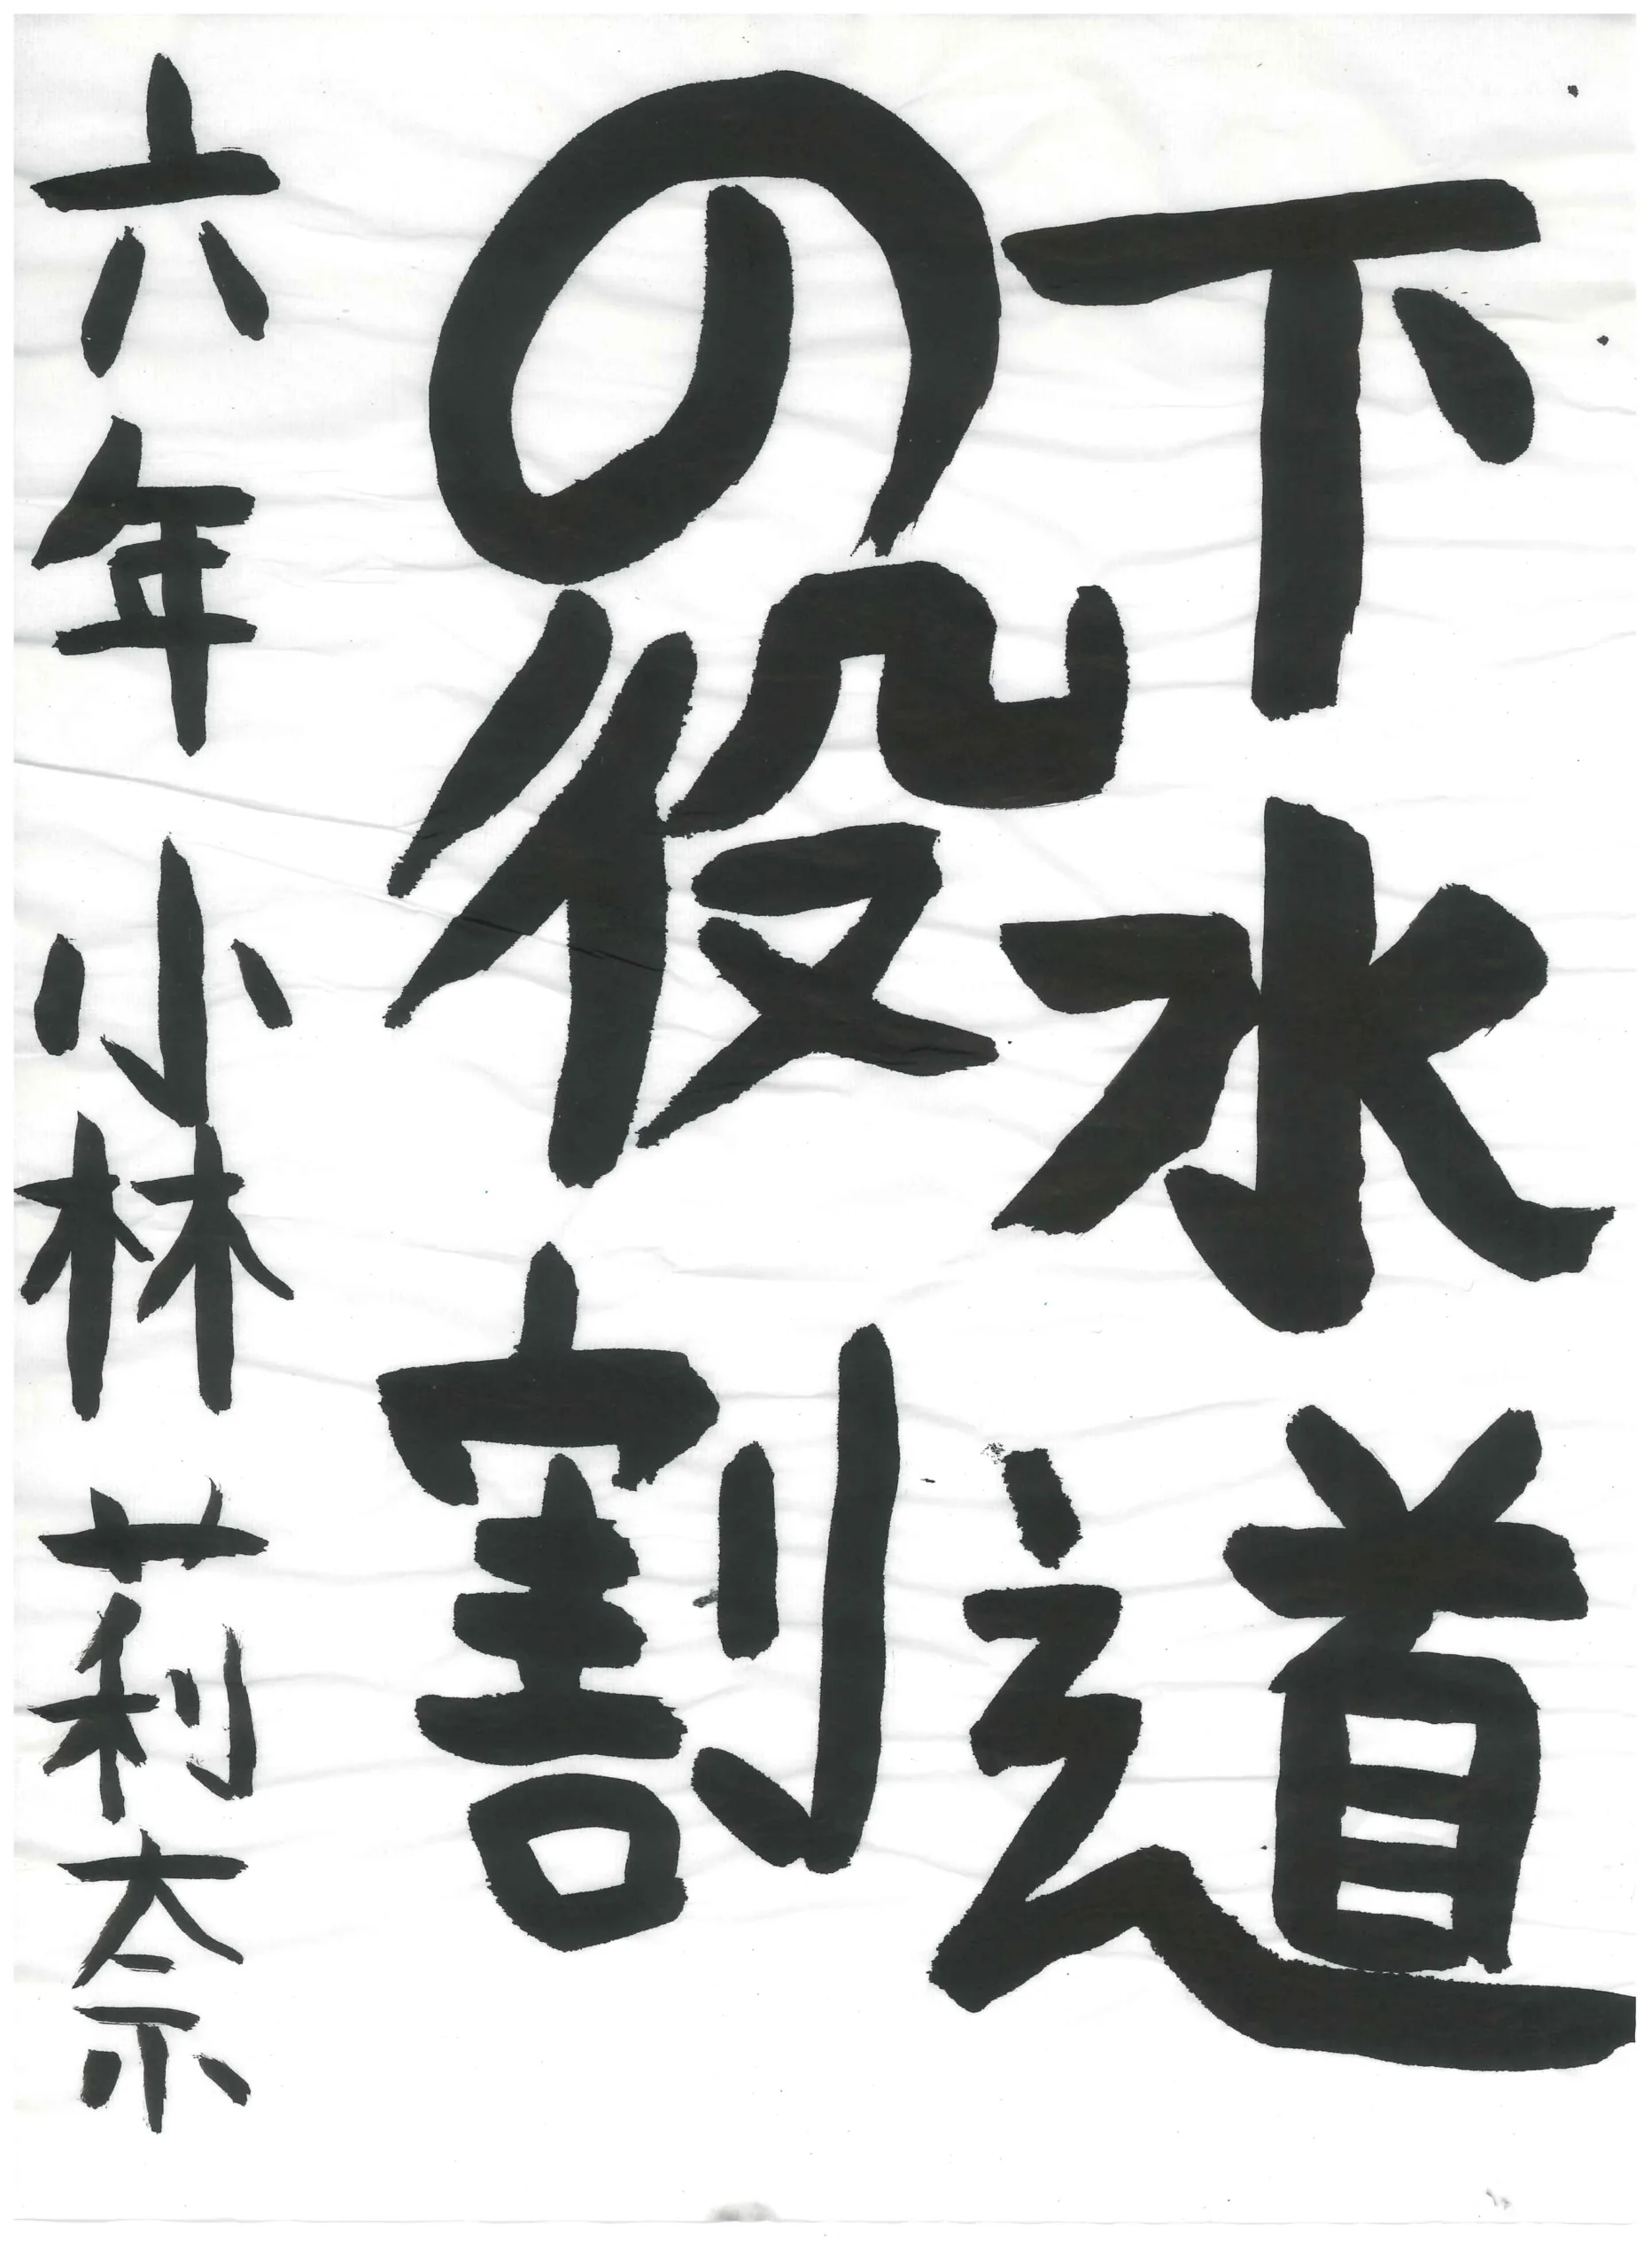 下水道
の役割
六年 小林 莉奈